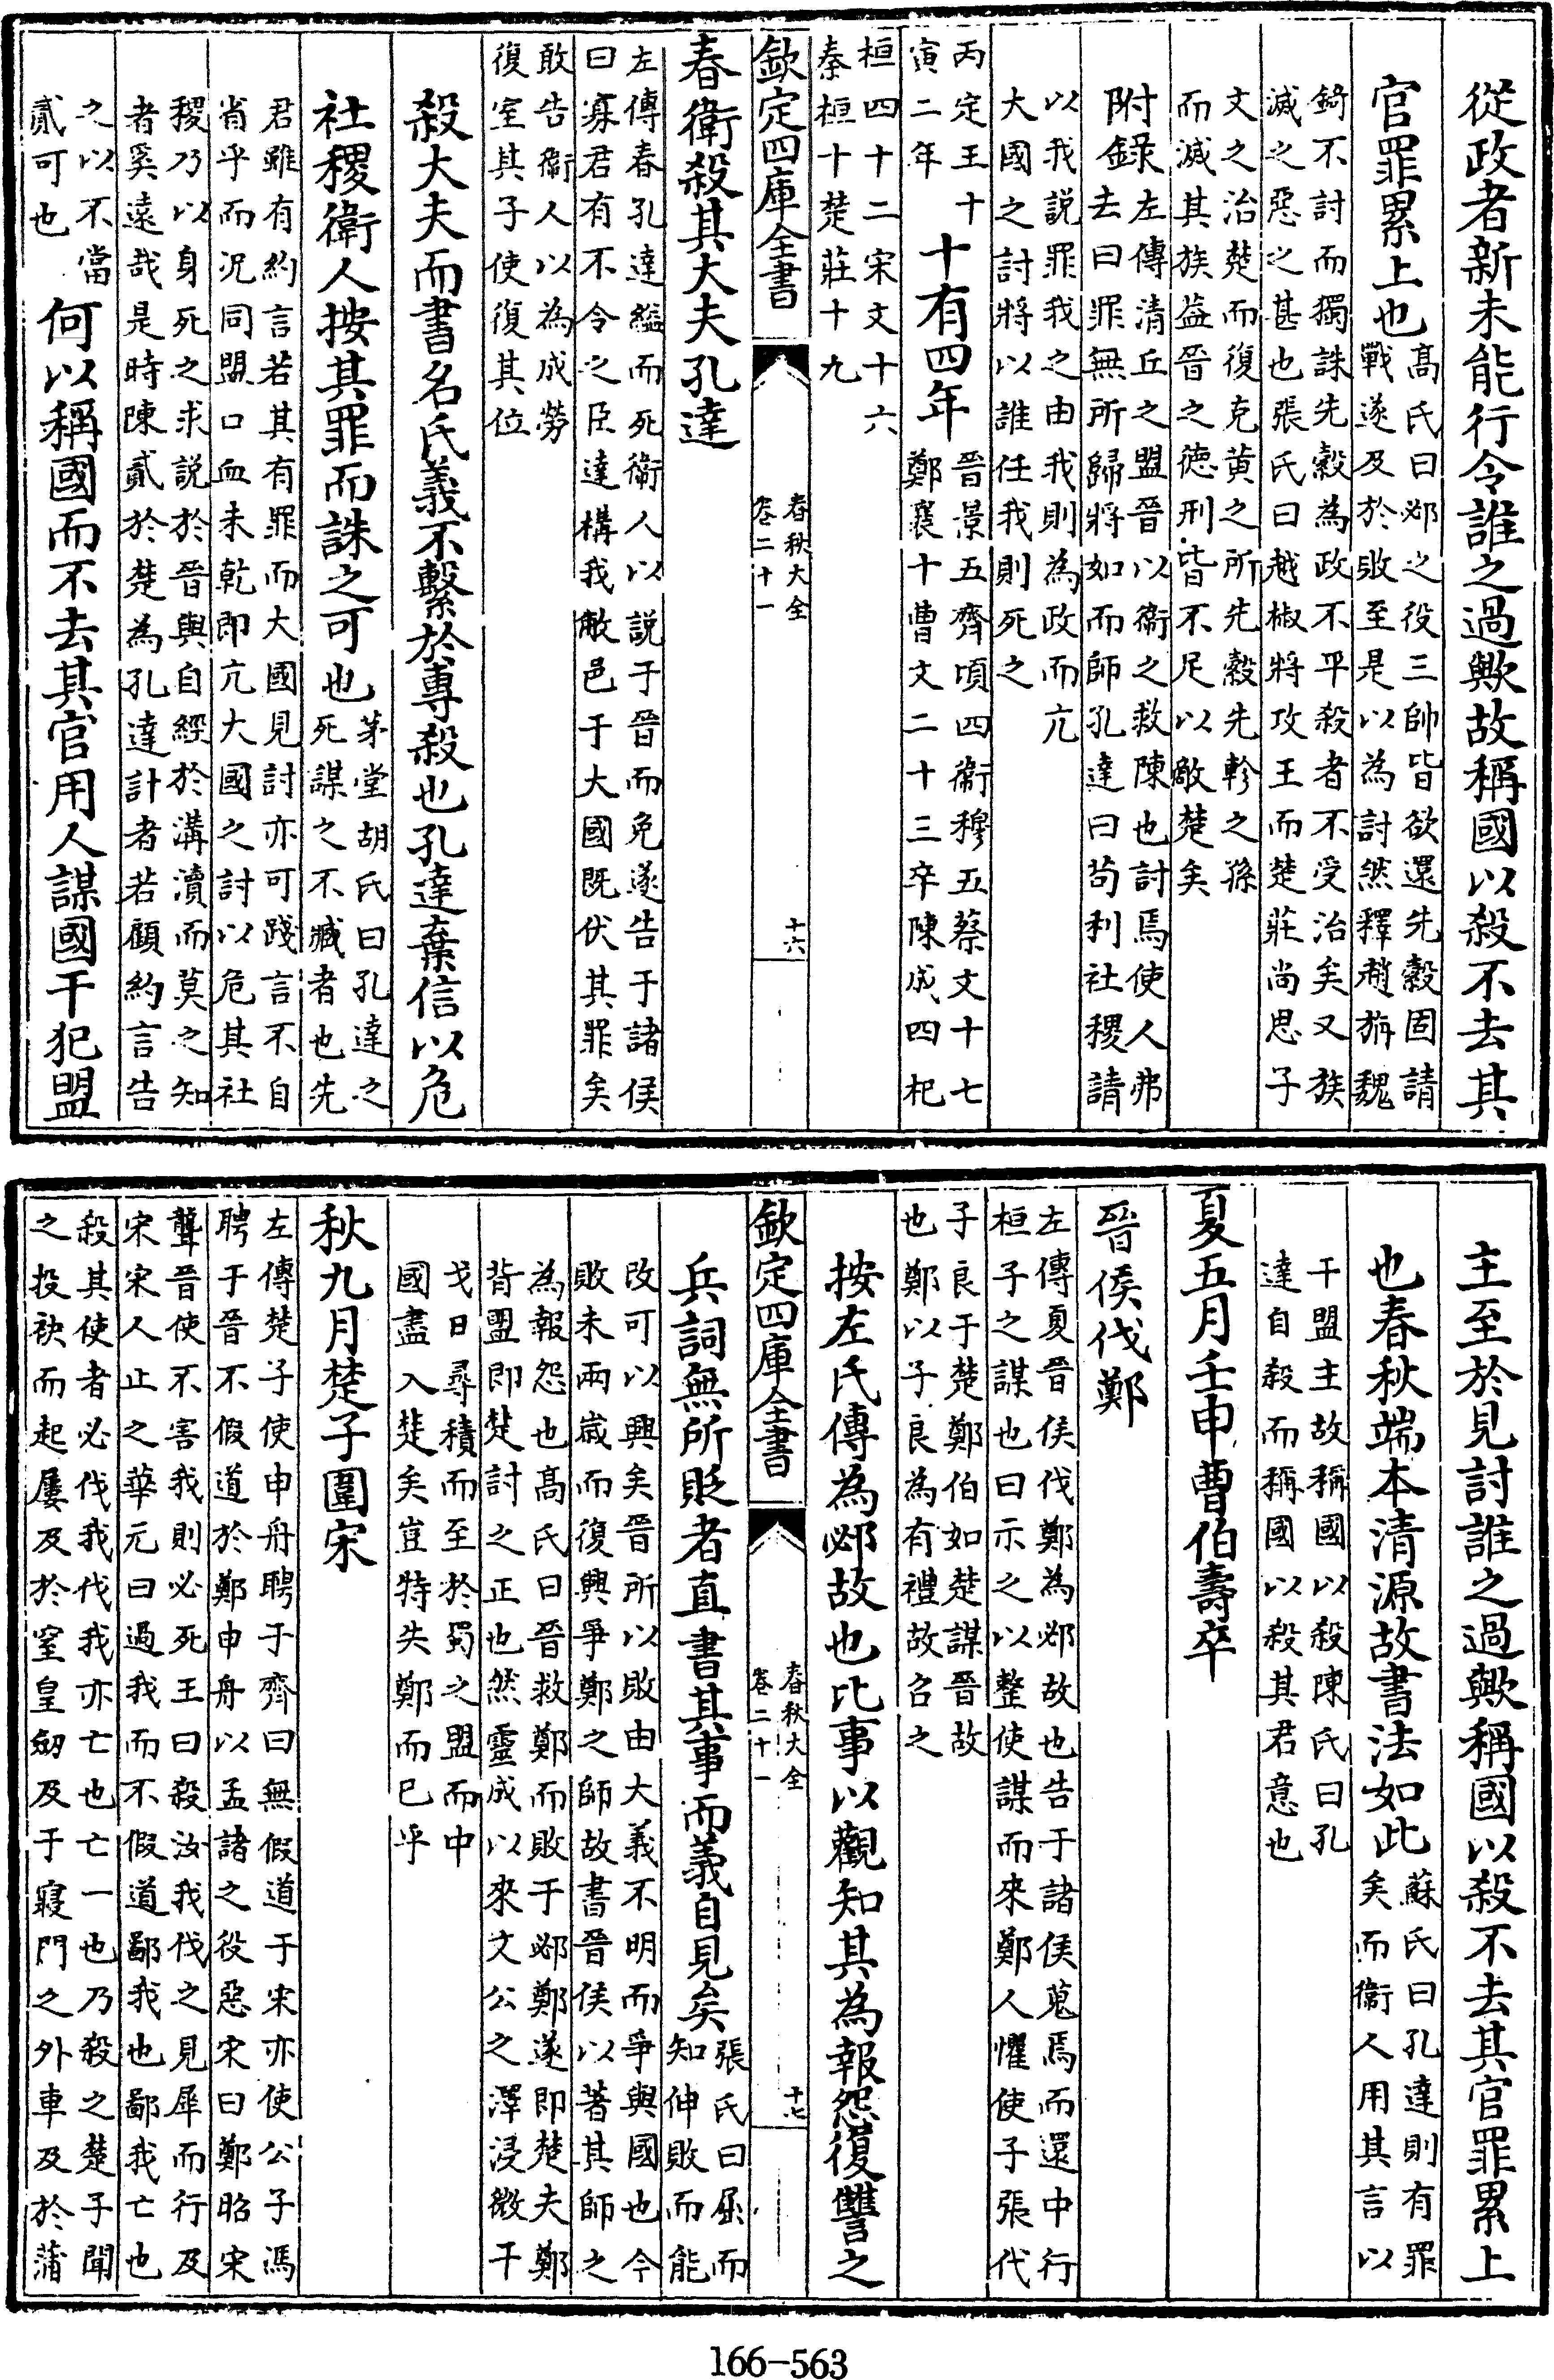 從政者新未能行令誰之過歟故稱國以殺不去其
官罪累上也
髙氏曰邲之役三帥皆欲還先縠固請
戰遂及於敗至是以為討然釋趙旃魏
錡不討而獨誅先縠為政不平殺者不受治矣又族
滅之惡之甚也張氏曰越椒將攻王而楚莊尚思子
文之治楚而復克黄之所先縠先軫之孫
而滅其族益晉之徳刑皆不足以敵楚矣
附録
左傳清丘之盟晉以衞之救陳也討焉使人弗
去曰罪無所歸將如而師孔達曰苟利社稷請
以我説罪我之由我則為政而亢
大國之討將以誰任我則死之
丙定王十
寅二年
十有四年
晉景五齊頃四衞穆五蔡文十七
鄭襄十曹文二十三卒陳成四杞
桓四十二宋文十六
秦桓十楚莊十九
欽定四庫全書
春秋大全
卷二十一
十六
春衛殺其大夫孔達
左傳春孔達縊而死衞人以説于晉而免遂告于諸侯
曰寡君有不令之臣達構我敝邑于大國既伏其罪矣
敢告衞人以為成勞
復室其子使復其位
殺大夫而書名氏義不繫於專殺也孔達棄信以危
社稷衛人按其罪而誅之可也
茅堂胡氏曰孔達之
死謀之不臧者也先
君雖有約言若其有罪而大國見討亦可踐言不自
省乎而况同盟口血未乾即亢大國之討以危其社
稷乃以身死之求説於晉與自經於溝瀆而莫之知
者奚逺哉是時陳貳於楚為孔達計者若顧約言告
之以不當
貳可也
何以稱國而不去其官用人謀國干犯盟
主至於見討誰之過歟稱國以殺不去其官罪累上
也春秋端本清源故書法如此
蘇氏曰孔達則有罪
矣而衞人用其言以
干盟主故稱國以殺陳氏曰孔
達自殺而稱國以殺其君意也
夏五月壬申曹伯壽卒
晉侯伐鄭
左傳夏晉侯伐鄭為邲故也告于諸侯蒐焉而還中行
桓子之謀也曰示之以整使謀而來鄭人懼使子張代
子良于楚鄭伯如楚謀晉故
也鄭以子良為有禮故召之
按左氏傳為邲故也比事以觀知其為報怨復讐之
欽定四庫全書
春秋大全
卷二十一
十七
兵詞無所貶者直書其事而義自見矣
張氏曰屈而
知伸敗而能
改可以興矣晉所以敗由大義不明而爭與國也今
敗未兩嵗而復興爭鄭之師故書晉侯以著其師之
為報怨也髙氏曰晉救鄭而敗于邲鄭遂即楚夫鄭
背盟即楚討之正也然靈成以來文公之澤浸微干
戈日尋積而至於蜀之盟而中
國盡入楚矣豈特失鄭而已乎
秋九月楚子圍宋
左傳楚子使申舟聘于齊曰無假道于宋亦使公子馮
聘于晉不假道於鄭申舟以孟諸之役惡宋曰鄭昭宋
聾晉使不害我則必死王曰殺汝我伐之見犀而行及
宋宋人止之華元曰過我而不假道鄙我也鄙我亡也
殺其使者必伐我我伐我亦亡也亡一也乃殺之楚子聞
之投袂而起屨及於窒皇劒及于寢門之外車及於蒲
166-563